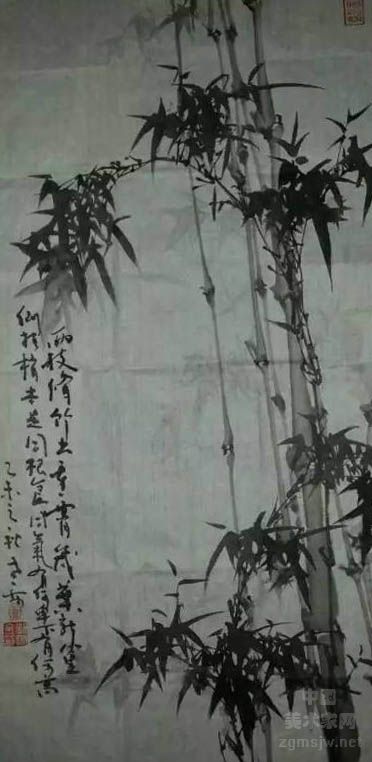 两枝脩竹出重霄幾葉新篁
倒挂梢本是同根復同氣有何卑有何高
乙未之秋
中国
美术家网
zgmsjw.net